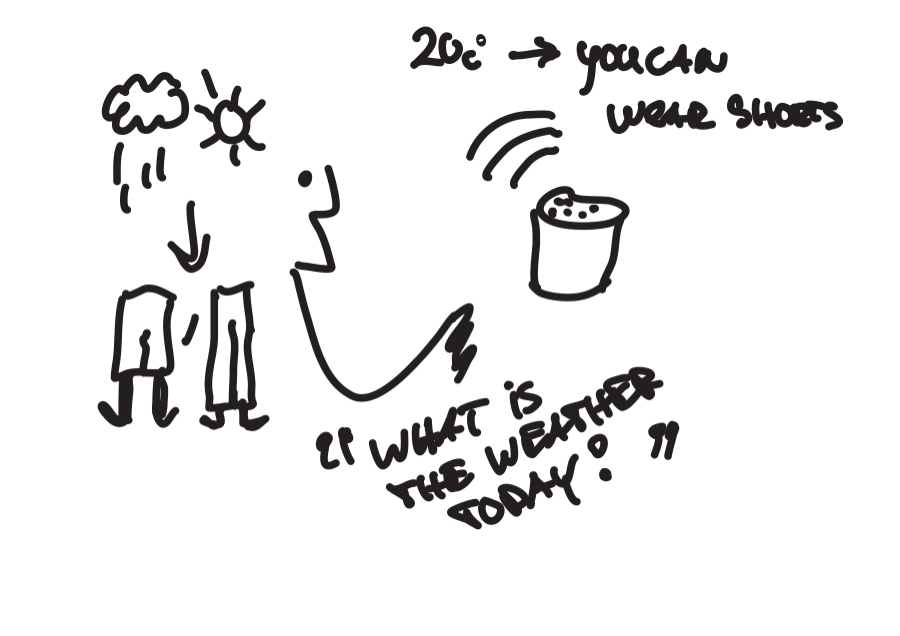 20c° → YOU CAN
WEAR SHORTS
"WHAT IS
THE WEATHER
TODAY?"